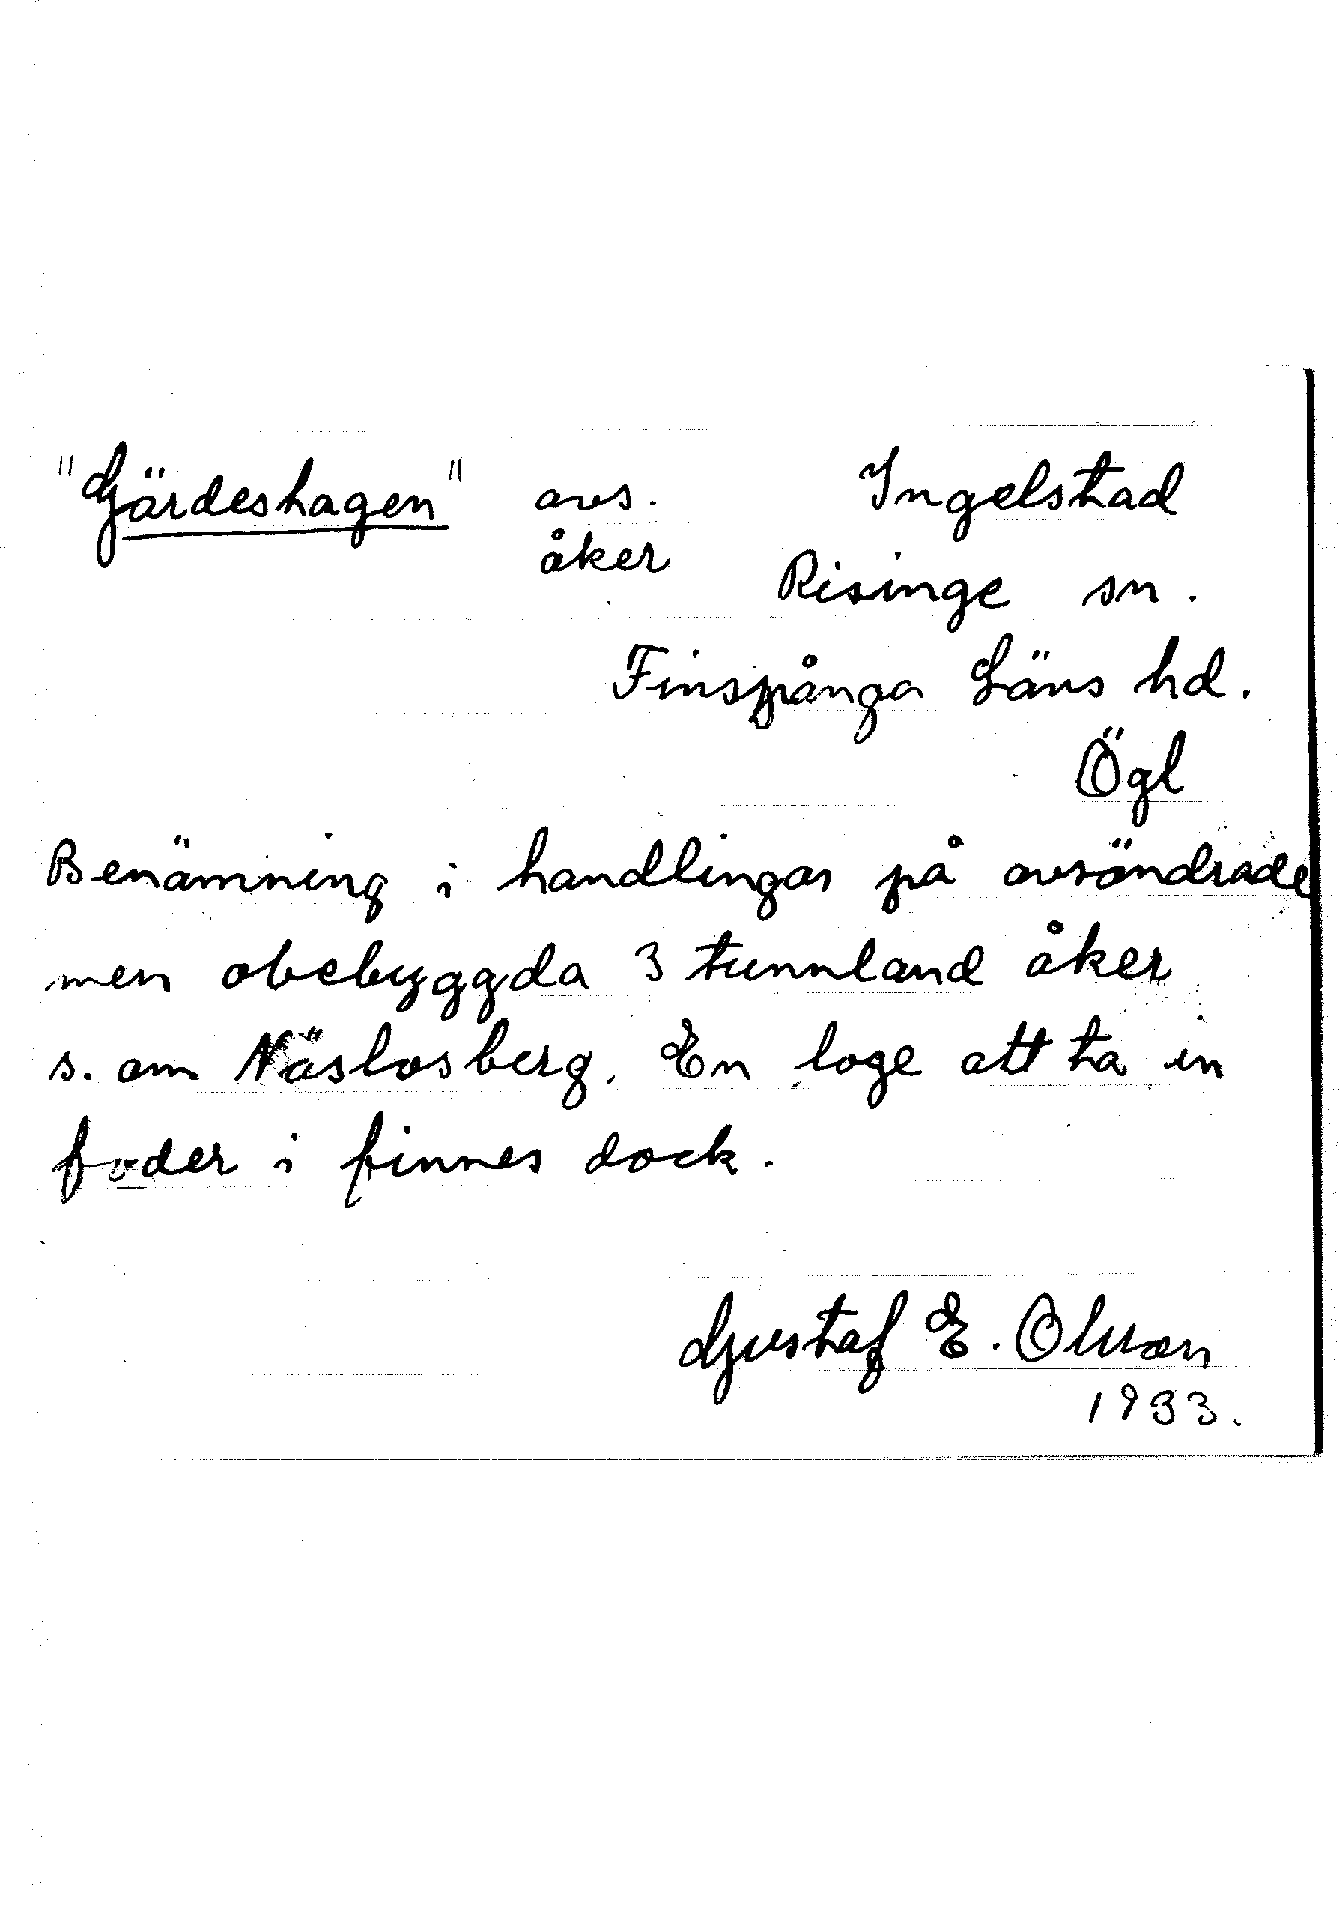 "Gärdeshagen" avs. Ingelstad
åker Risinge sn.
Finspånga Läns hd.
Ögl
Benämning i handlingar på avsöndrade
men obebyggda 3 tunnland åker
s. om Näslosberg. En loge att ta in
foder i finnes dock.
Gustaf E. Olsson
1933.